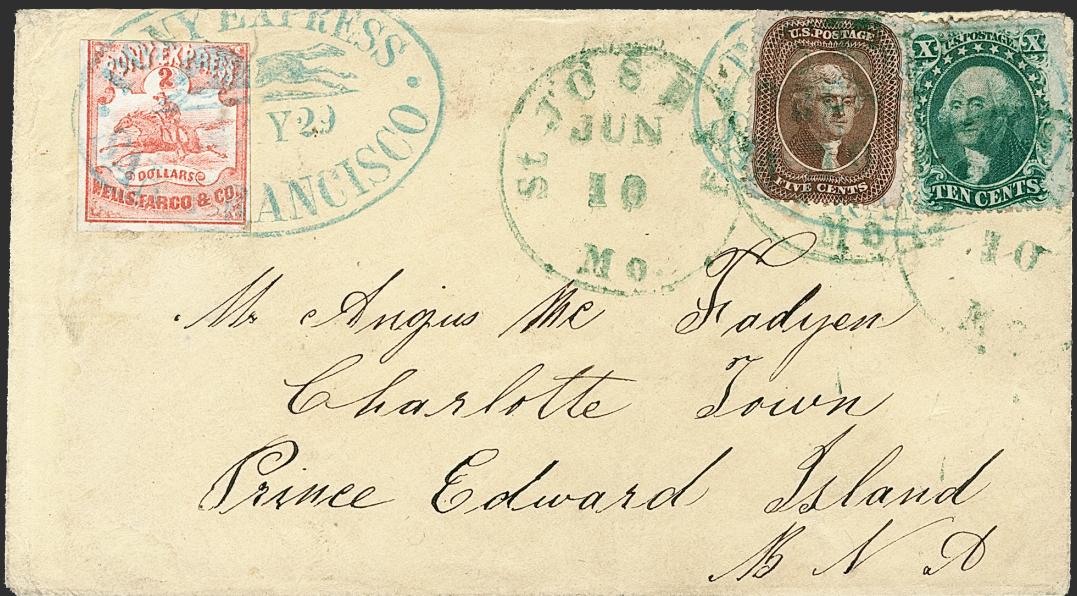 PONY EXPRESS
2
DOLLARS
WELLS, FARGO & CO.
NY EXPRESS
Y 29
ANCISCO
St JOSE
JUN
10
Mo.
U.S. POSTAGE
FIVE CENTS
X U.S. POSTAGE. X
TEN CENTS
10
Mr Angus Mc Fadyen
Charlotte Town
Prince Edward Island
B N A